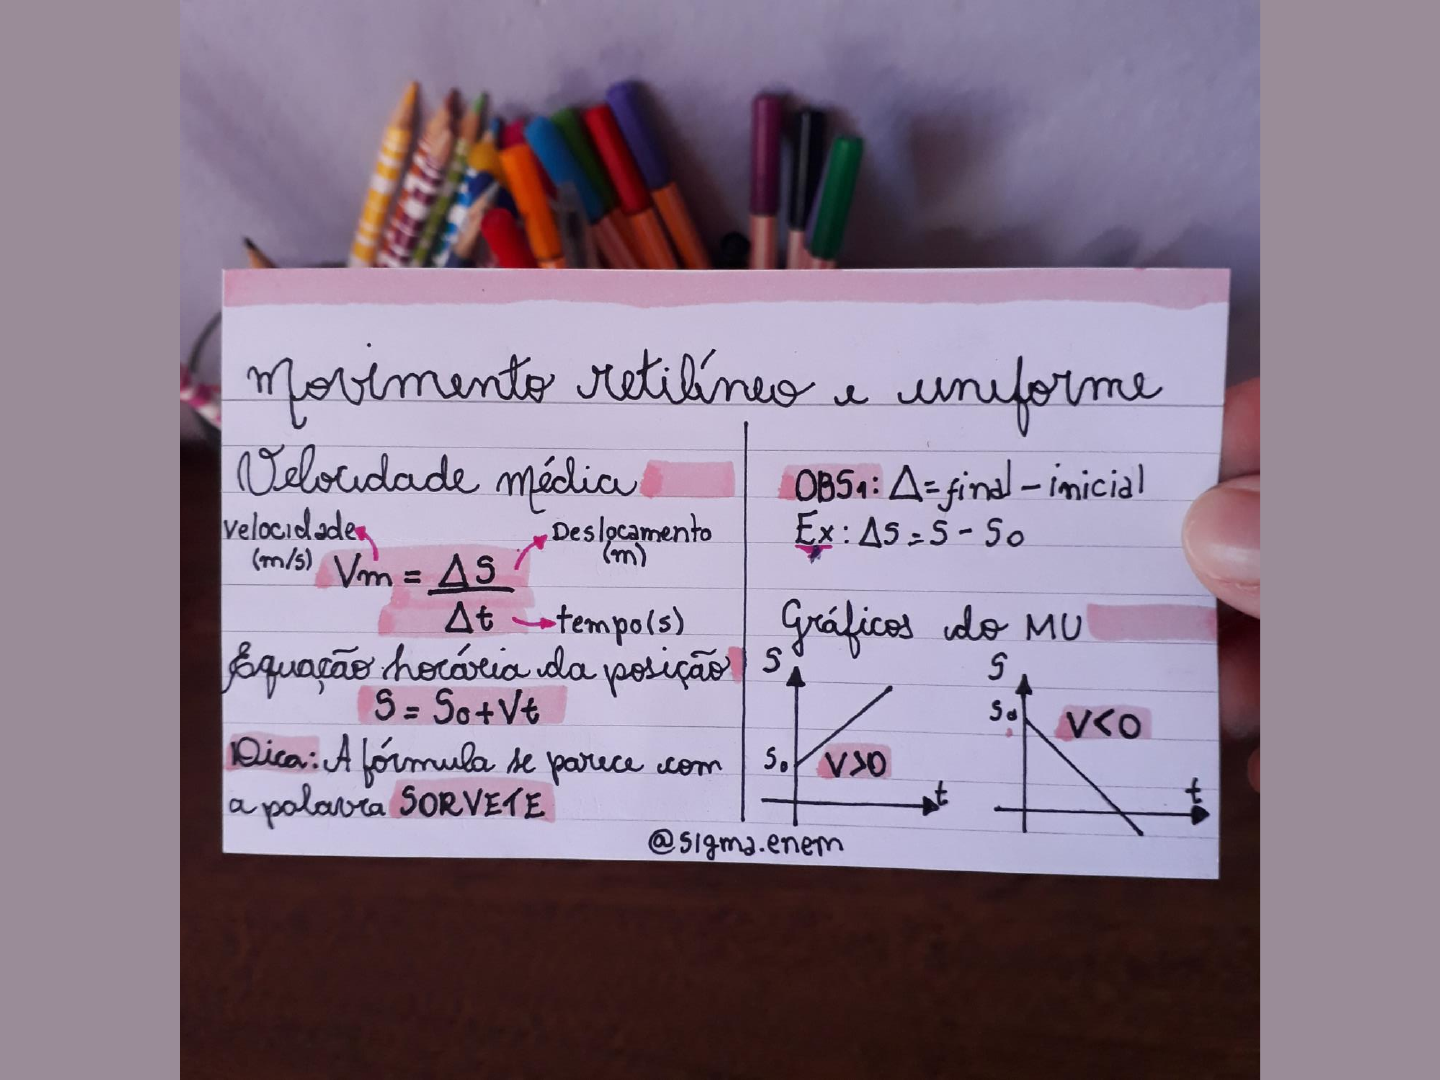 Movimento retilíneo e uniforme
Velocidade média
velocidade
(m/s)
Deslocamento
(m)
Vm = ΔS
Δt
tempo(s)
Equação horária da posição
S = So+Vt
Dica: A fórmula se parece com
a palavra SORVETE
OBS1: Δ = final - inicial
Ex: ΔS = S - So
Gráficos do MU
S
So
V>0
t
S
So
V<0
t
@sigma.enem